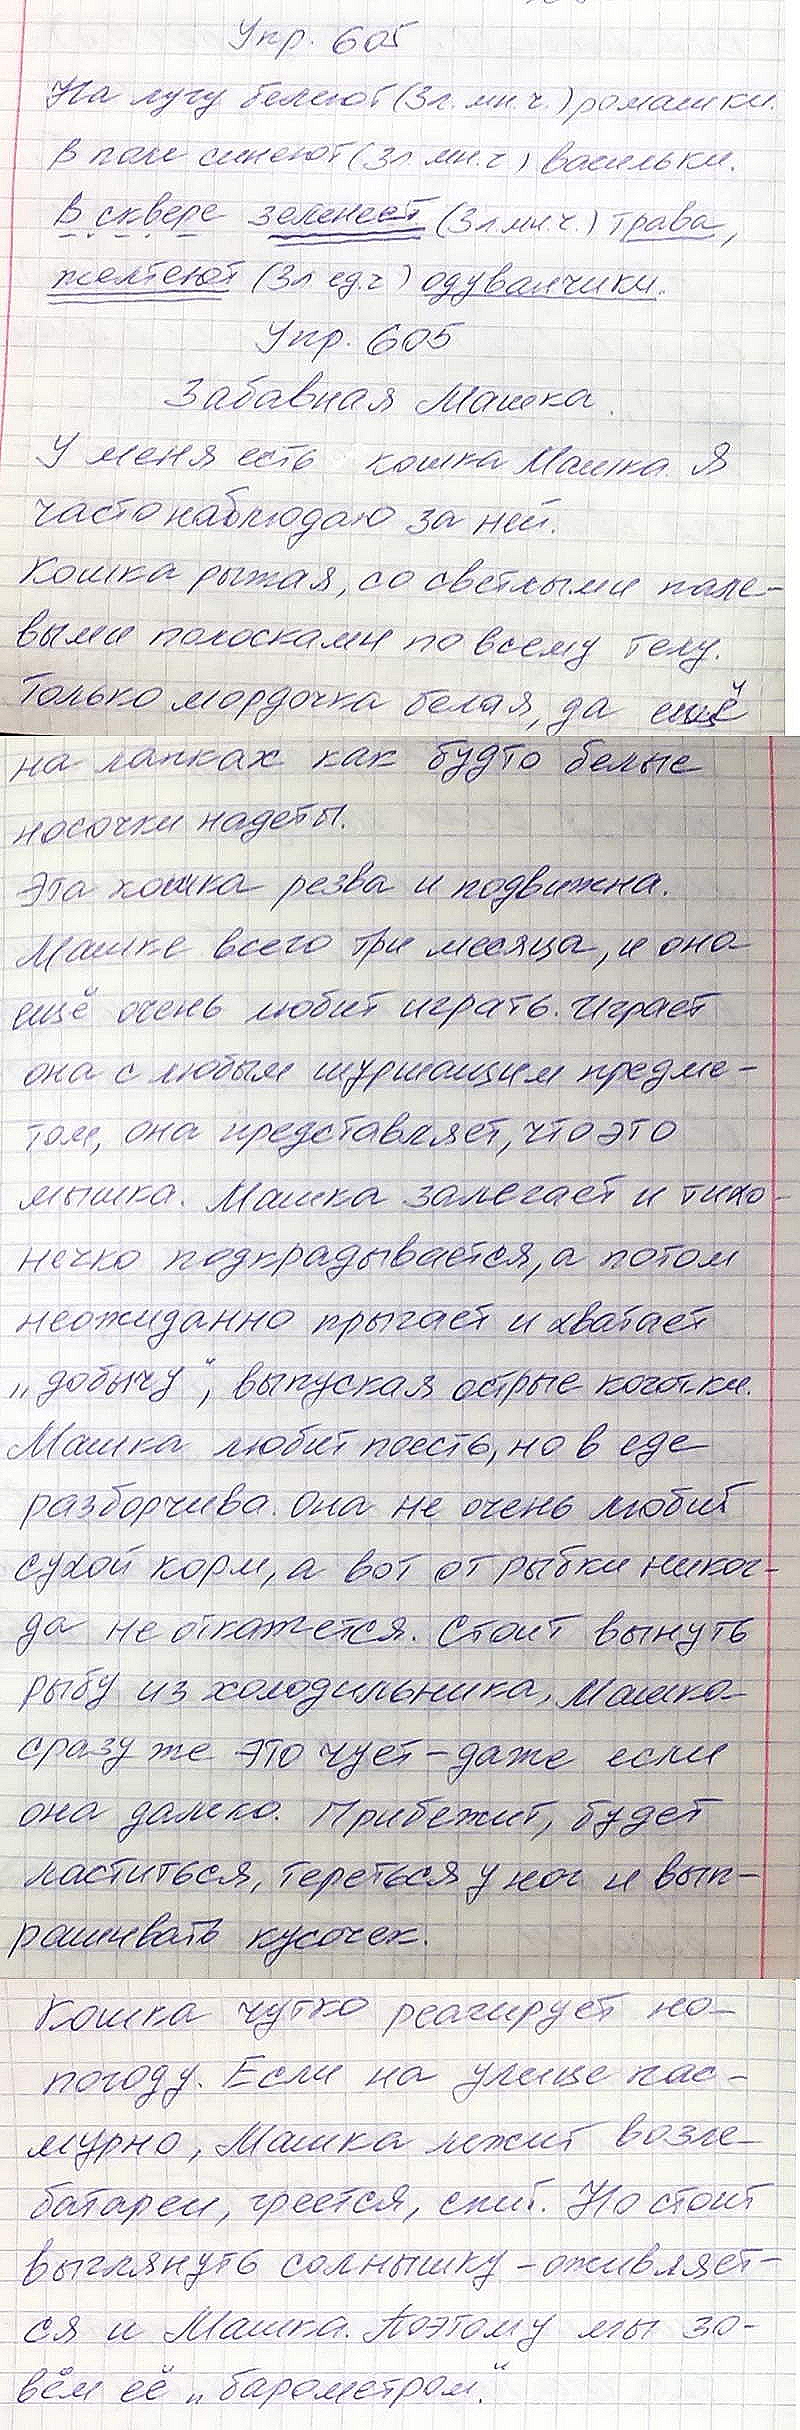 Упр. 605
На лугу белеют (3л. мн. ч.) ромашки.
В поле синеют (3л. мн. ч) васильки.
В сквере зеленеет (3л. мн. ч.) трава,
желтеют (3л ед. ч) одуванчики.
Упр. 605
Забавная Машка.
У меня есть кошка Машка. Я
часто наблюдаю за ней.
Кошка рыжая, со светлыми пале-
выми полосками по всему телу.
Только мордочка белая, да ещё
на лапках как будто белые
носочки надеты.
Эта кошка резва и подвижна.
Машке всего три месяца, и она
ещё очень любит играть. Играет
она с любым шуршащим предме-
том, она представляет, что это
мышка. Машка залегает и тихо-
нечко подкрадывается, а потом
неожиданно прыгает и хватает
„добычу", выпуская острые коготки.
Машка любит поесть, но в еде
разборчива. Она не очень любит
сухой корм, а вот от рыбки никог-
да не откажется. Стоит вынуть
рыбу из холодильника, Машка
сразу же это чует - даже если
она далеко. Прибежит, будет
ластиться, тереться у ног и вып-
рашивать кусочек.
Кошка чутко реагирует на
погоду. Если на улице пас-
мурно, Машка лежит возле
батареи, греется, спит. Но стоит
выглянуть солнышку - оживляет-
ся и Машка. Поэтому мы зо-
вём её „барометром".